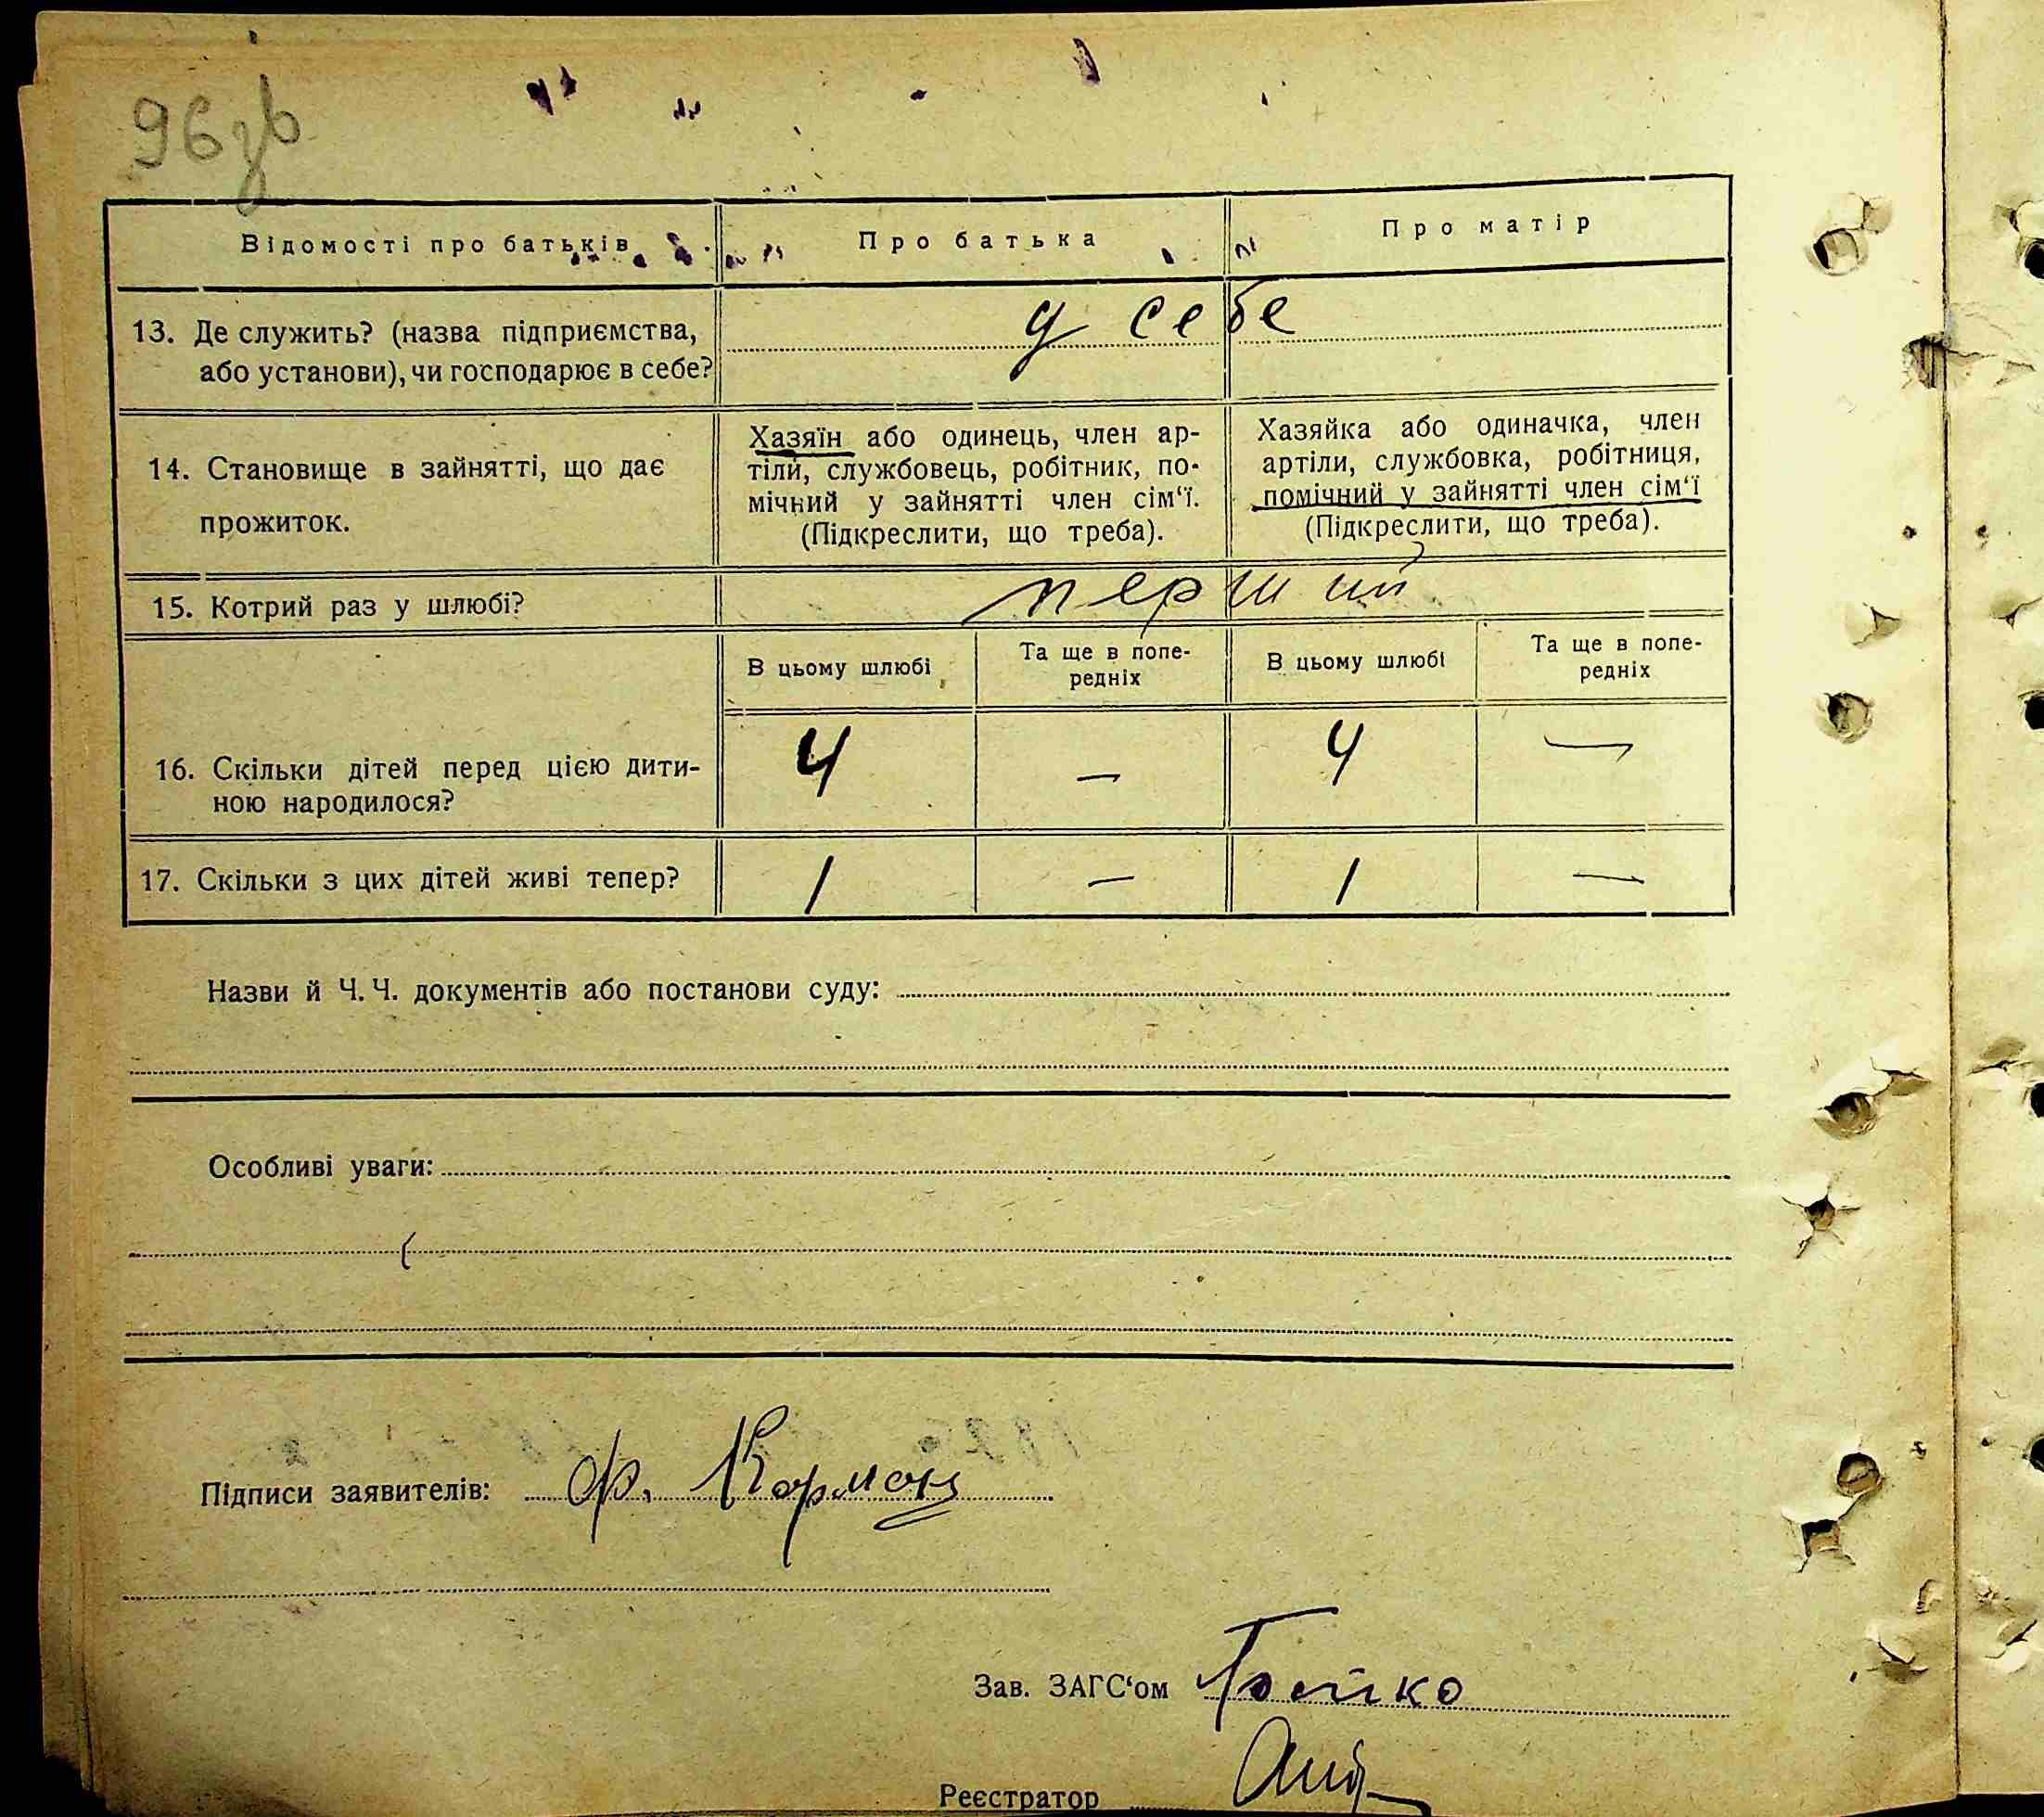 96зв
Відомості про батьків
Про батька
Про матір
13. Де служить? (назва підприємства,
або установи), чи господарює в себе?
у себе
14. Становище в зайнятті, що дає
прожиток.
Хазяїн або одинець, член ар-
тіли, службовець, робітник, по-
мічний у зайнятті член сім‘ї.
(Підкреслити, що треба).
Хазяйка або одиначка, член
артіли, службовка, робітниця,
помічний у зайнятті член сім‘ї
(Підкреслити, що треба).
15. Котрий раз у шлюбі?
перший
В цьому шлюбі
Та ще в попе-
редніх
В цьому шлюбі
Та ще в попе-
редніх
16. Скільки дітей перед цією дити-
ною народилося?
4 — 4 —
17. Скільки з цих дітей живі тепер?
1 — 1 —
Назви й Ч. Ч. документів або постанови суду:
Особливі уваги:
Підписи заявителів: Ф. Корман
Зав. ЗАГС‘ом Бойко
Реєстратор